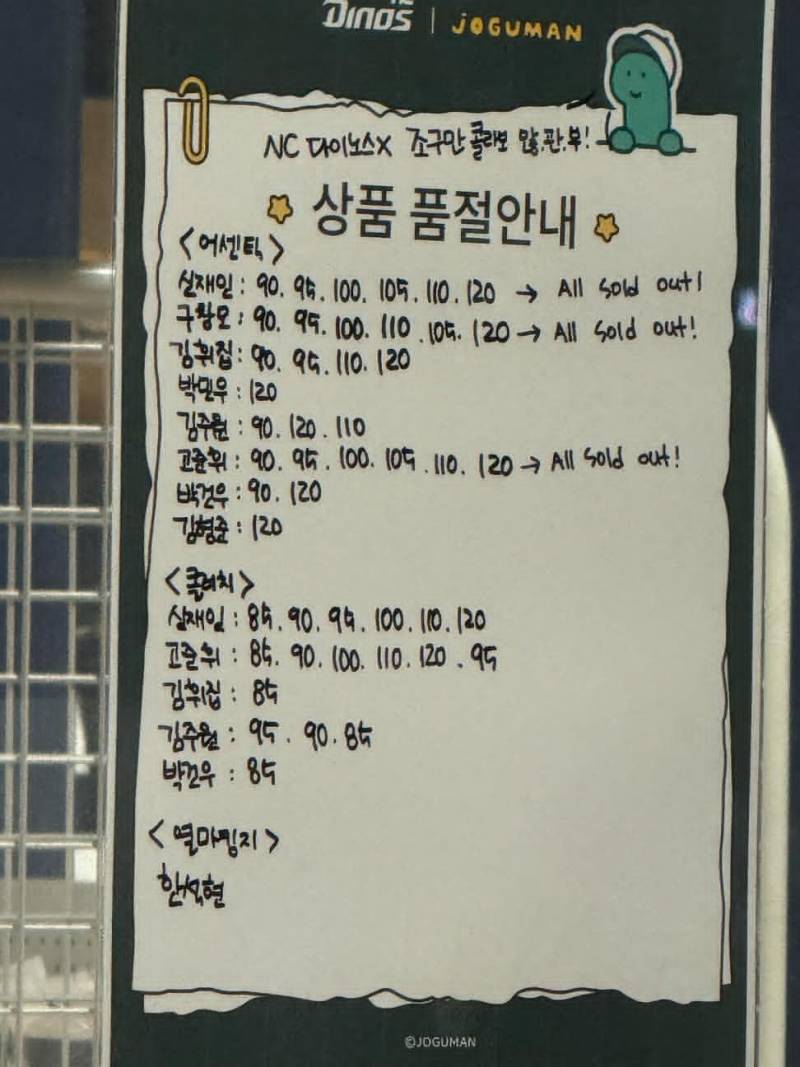 Dinos | JOGUMAN
NC 다이노스X 조구만 콜라보 많.관.부!
상품 품절안내
<어센틱>
신재인 : 90. 95. 100. 105. 110. 120 → All sold out!
구창모 : 90. 95. 100. 110. 105. 120 → All sold out!
김휘집 : 90. 95. 110. 120
박민우 : 120
김주원 : 90. 120. 110
고준휘 : 90. 95. 100. 105. 110. 120 → All sold out!
박건우 : 90. 120
김형준 : 120
<클러치>
신재인 : 85. 90. 95. 100. 110. 120
고준휘 : 85. 90. 100. 110. 120. 95
김휘집 : 85
김주원 : 95. 90. 85
박건우 : 85
<열마킹지>
한석현
©JOGUMAN